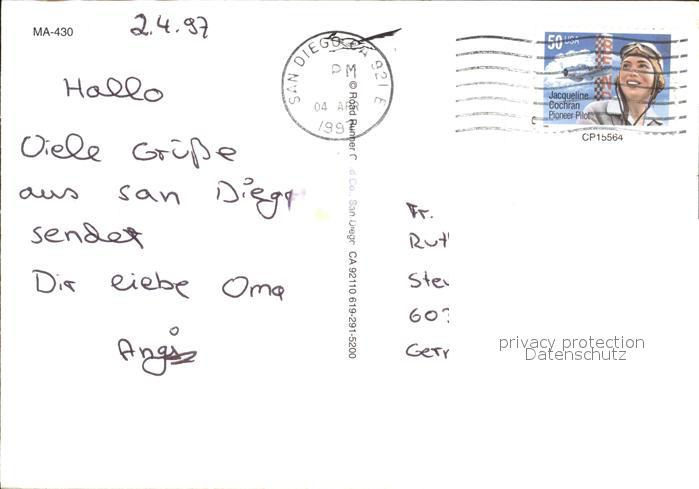 MA-430
2.4.97
Hallo
Viele Grüße
aus San Diego
sendet
Dir liebe Oma
Angi
SAN DIEGO CA 921
PM
04 APR
1997
© Road Runner Co., San Diego CA 92110 619-291-5200
50 USA
Jacqueline
Cochran
Pioneer Pilot
CP15564
Fr.
Rut
Ste
60
Ger
privacy protection
Datenschutz